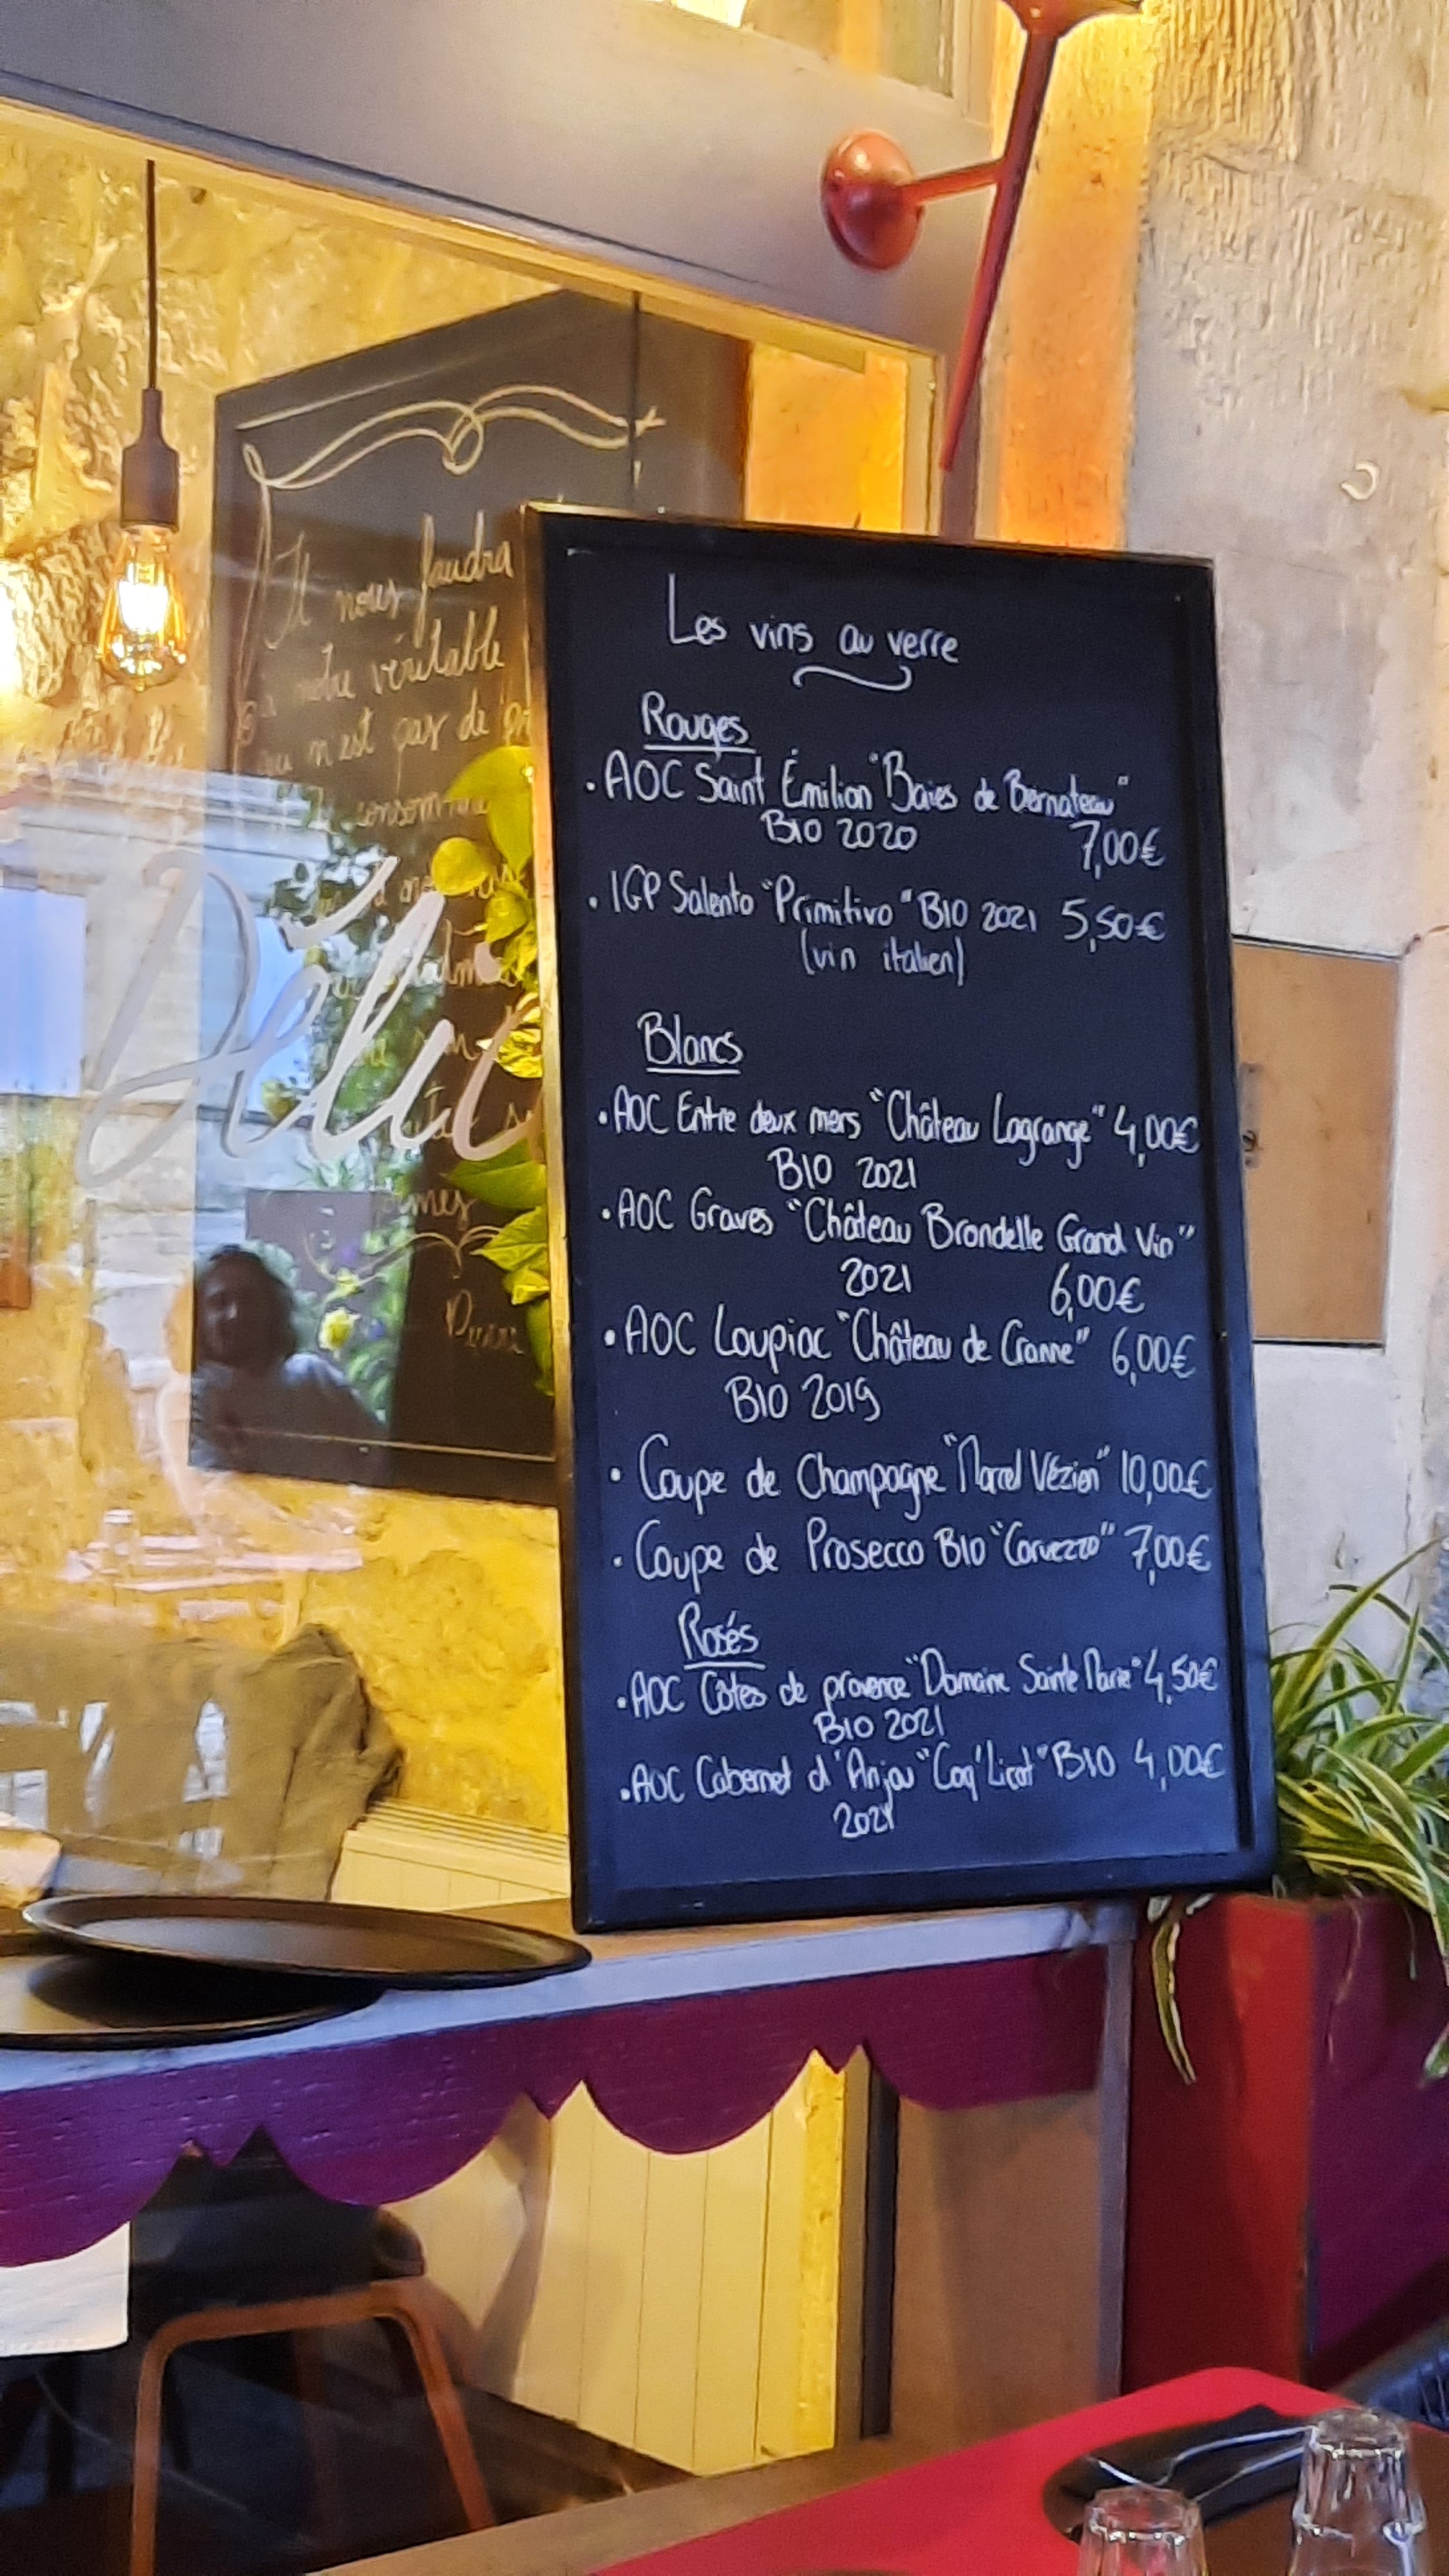 Les vins au verre
Rouges
• AOC Saint Émilion "Baies de Bernateau"
BIO 2020 7,00€
• IGP Salento "Primitivo" BIO 2021 5,50€
(vin italien)
Blancs
• AOC Entre deux mers "Château Lagrange" 4,00€
BIO 2021
• AOC Graves "Château Brondelle Grand Vin"
2021 6,00€
• AOC Loupiac "Château de Cranne" 6,00€
BIO 2019
• Coupe de Champagne "Marcel Vézien" 10,00€
• Coupe de Prosecco BIO "Corvezzo" 7,00€
Rosés
• AOC Côtes de provence "Domaine Sainte Marie" 4,50€
BIO 2021
• AOC Cabernet d'Anjou "Coq'Licot" BIO 4,00€
2021
Il nous faudra
véritable
n'est pas de
Délic